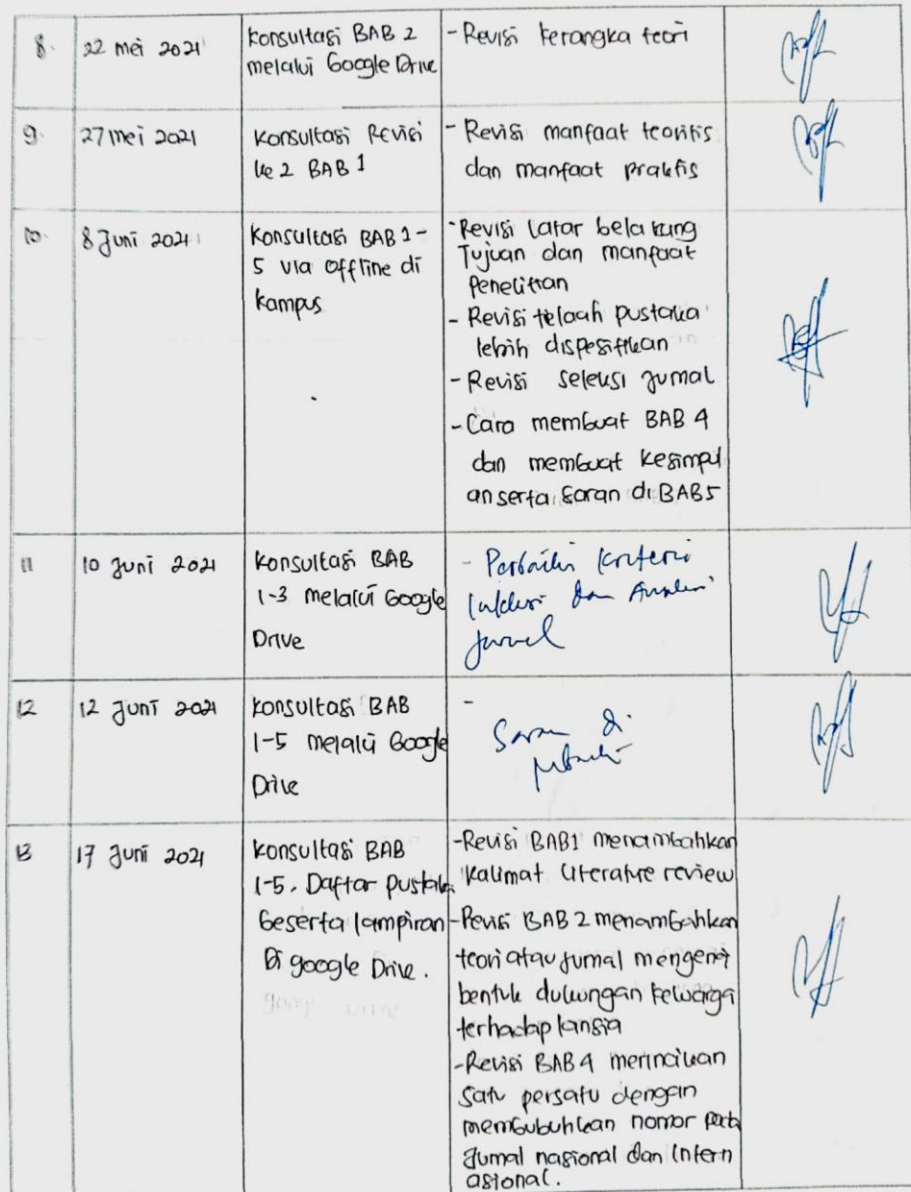 8.
22 mei 2021
konsultasi BAB 2
melalui Google Drive
- Revisi kerangka teori
9.
27 mei 2021
konsultasi Revisi
ke 2 BAB 1
- Revisi manfaat teoritis
dan manfaat praktis
10.
8 Juni 2021
Konsultasi BAB 1-
5 via offline di
kampus
- Revisi latar belakang
Tujuan dan manfaat
Penelitian
- Revisi telaah pustaka
lebih dispesifikan
- Revisi seleksi Jurnal
- Cara membuat BAB 4
dan membuat kesimpul
an serta saran di BAB 5
11
10 Juni 2021
konsultasi BAB
1-3 melalui Google
Drive
- Perbaiki kriteria
Inklusi dan Analisi
Jurnal
12
12 Juni 2021
konsultasi BAB
1-5 melalui Google
Drive
-
Saran di
13
17 Juni 2021
konsultasi BAB
1-5. Daftar pustaka
beserta lampiran
Di google Drive.
- Revisi BAB 1 menambahkan
kalimat Literature review
- Revisi BAB 2 menambahkan
teori atau jurnal mengenai
bentuk dukungan keluarga
terhadap lansia
- Revisi BAB 4 merincikan
satu persatu dengan
membubuhkan nomor pada
Jurnal nasional dan Intern
asional.